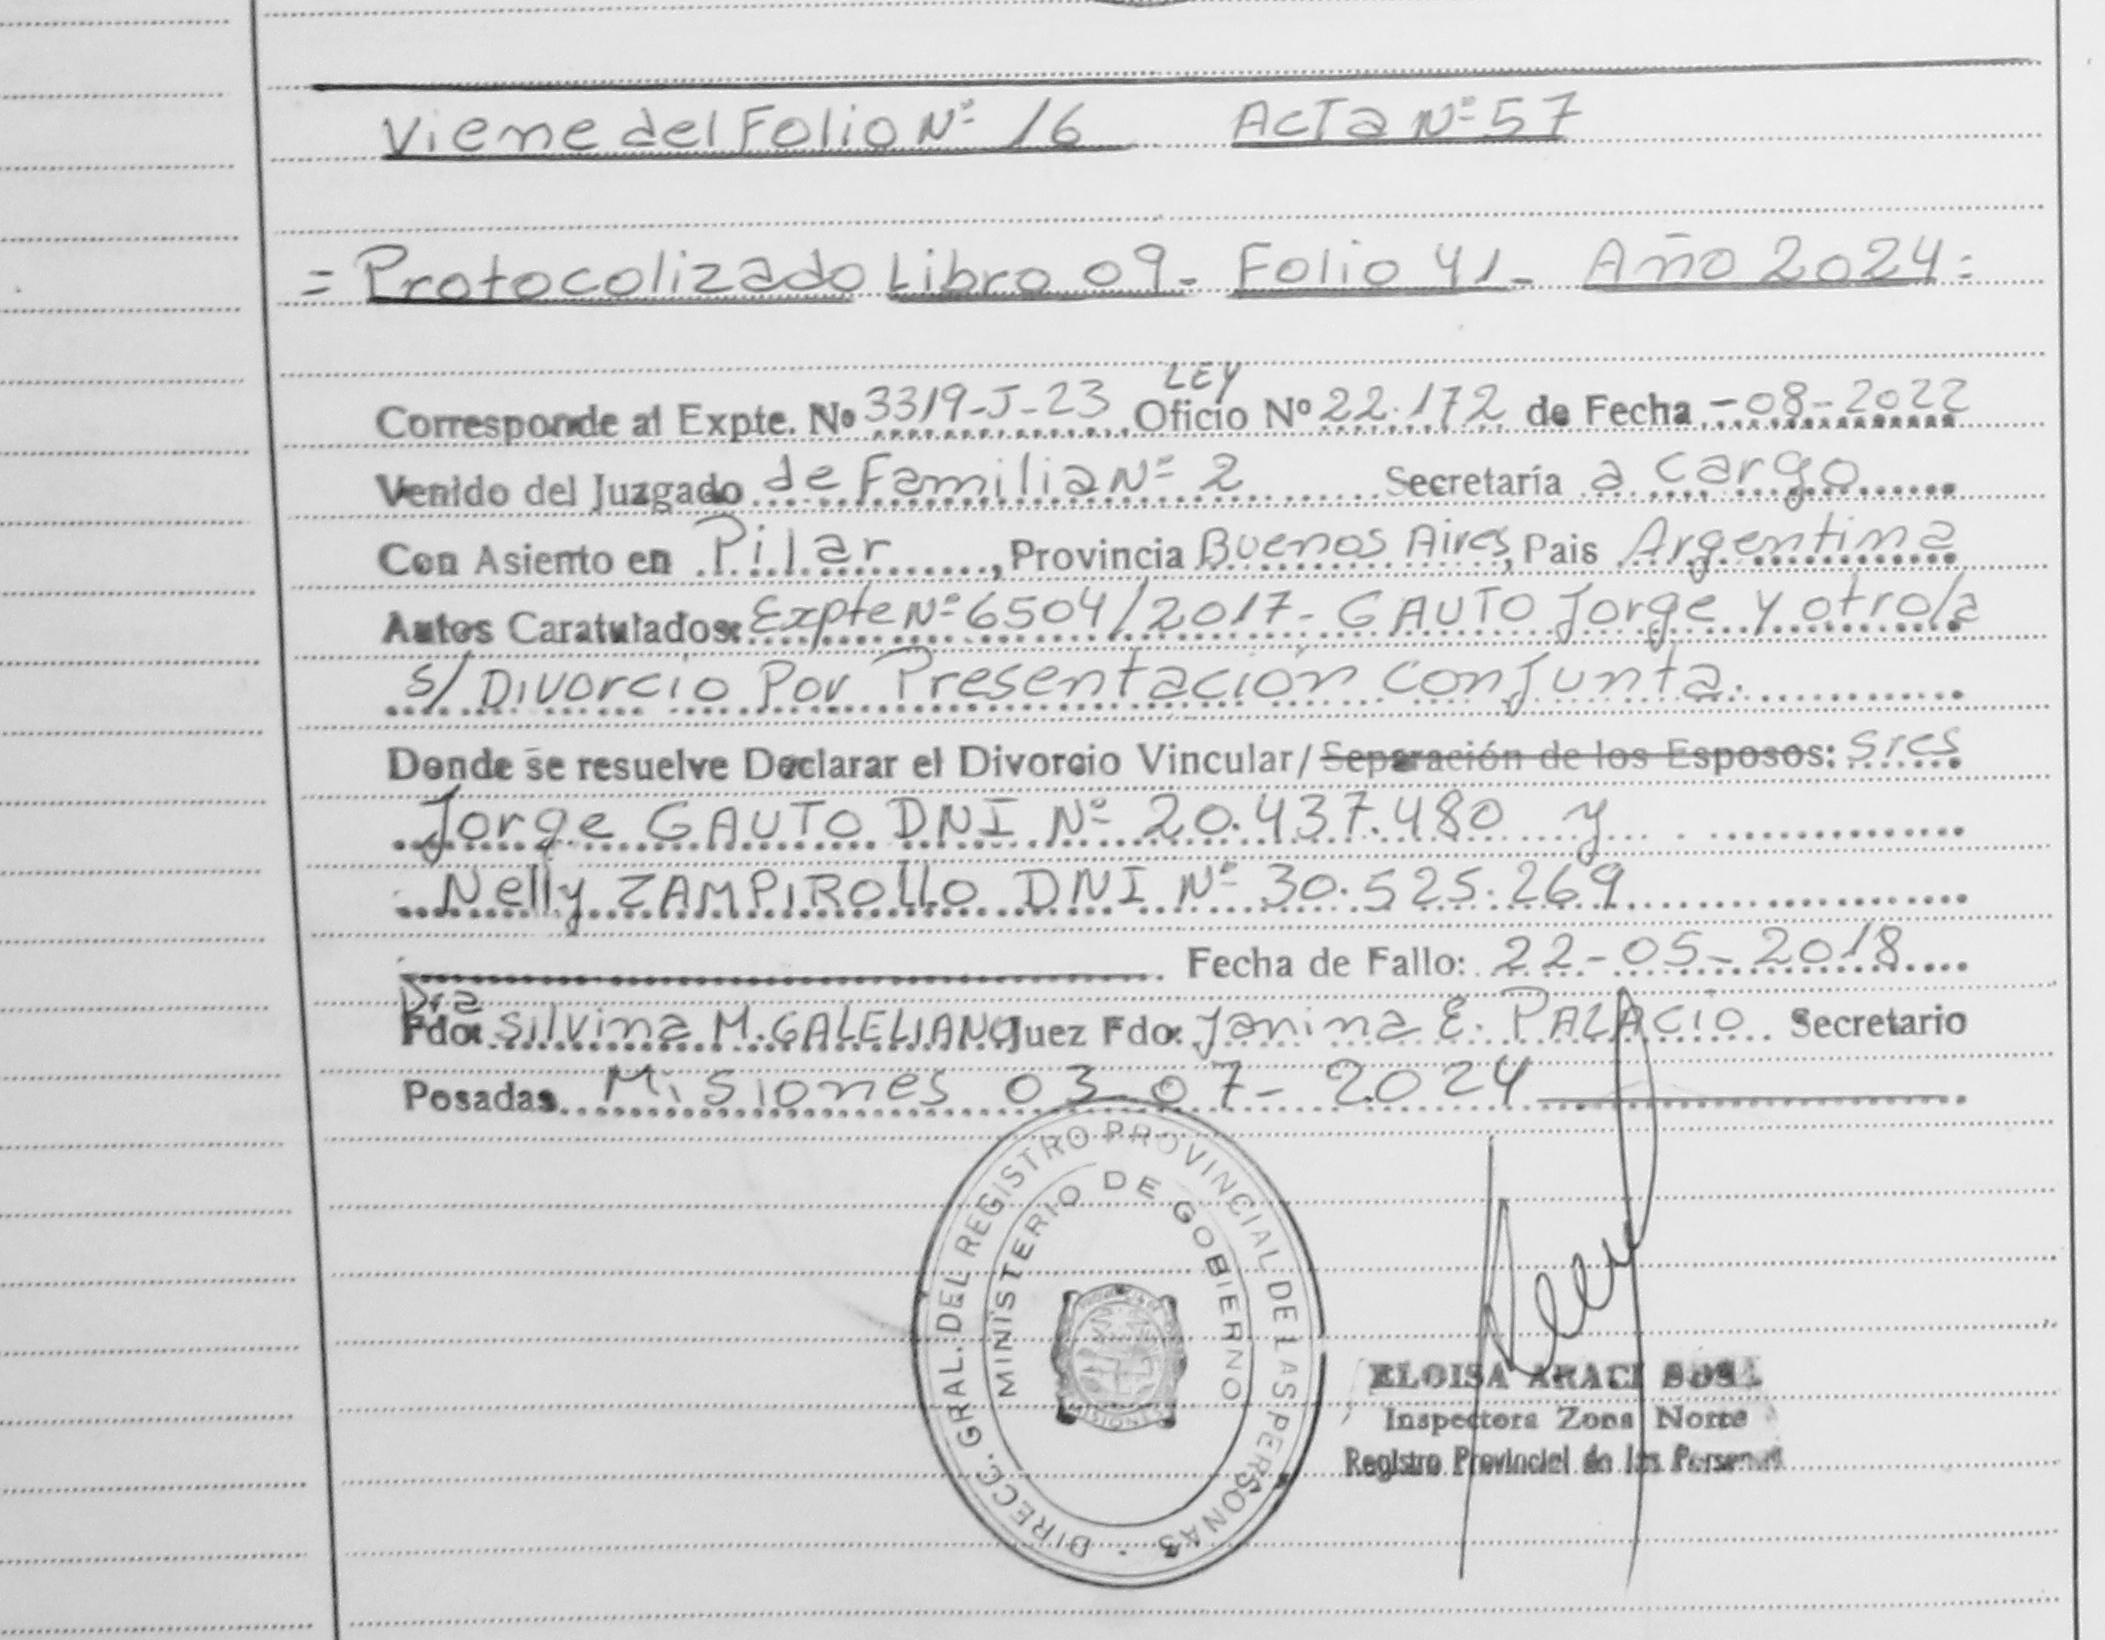 Viene del Folio Nº 16 Acta Nº 57
= Protocolizado Libro 09 - Folio 41 - Año 2024 =
LEY
Corresponde al Expte. Nº 3319-J-23 Oficio Nº 22.172 de Fecha -08-2022
Venido del Juzgado de Familia Nº 2 Secretaría a cargo
Con Asiento en Pilar, Provincia Buenos Aires, Pais Argentina
Autos Caratulados: Expte Nº 6504/2017 - GAUTO Jorge y otro/a
s/ Divorcio Por Presentación Conjunta.
Donde se resuelve Declarar el Divorcio Vincular/ Separación de los Esposos: Sres
Jorge GAUTO DNI Nº 20.437.480 y
Nelly ZAMPIROLLO DNI Nº 30.525.269
Fecha de Fallo: 22-05-2018
Dra
Fdo: Silvina M. GALELIANO Juez Fdo: Janina E. PALACIO Secretario
Posadas Misiones 03-07-2024
DIRECC. GRAL. DEL REGISTRO PROVINCIAL DE LAS PERSONAS
MINISTERIO DE GOBIERNO
MISIONES
ELOISA ARACI SOSA
Inspectora Zona Norte
Registro Provincial de las Personas